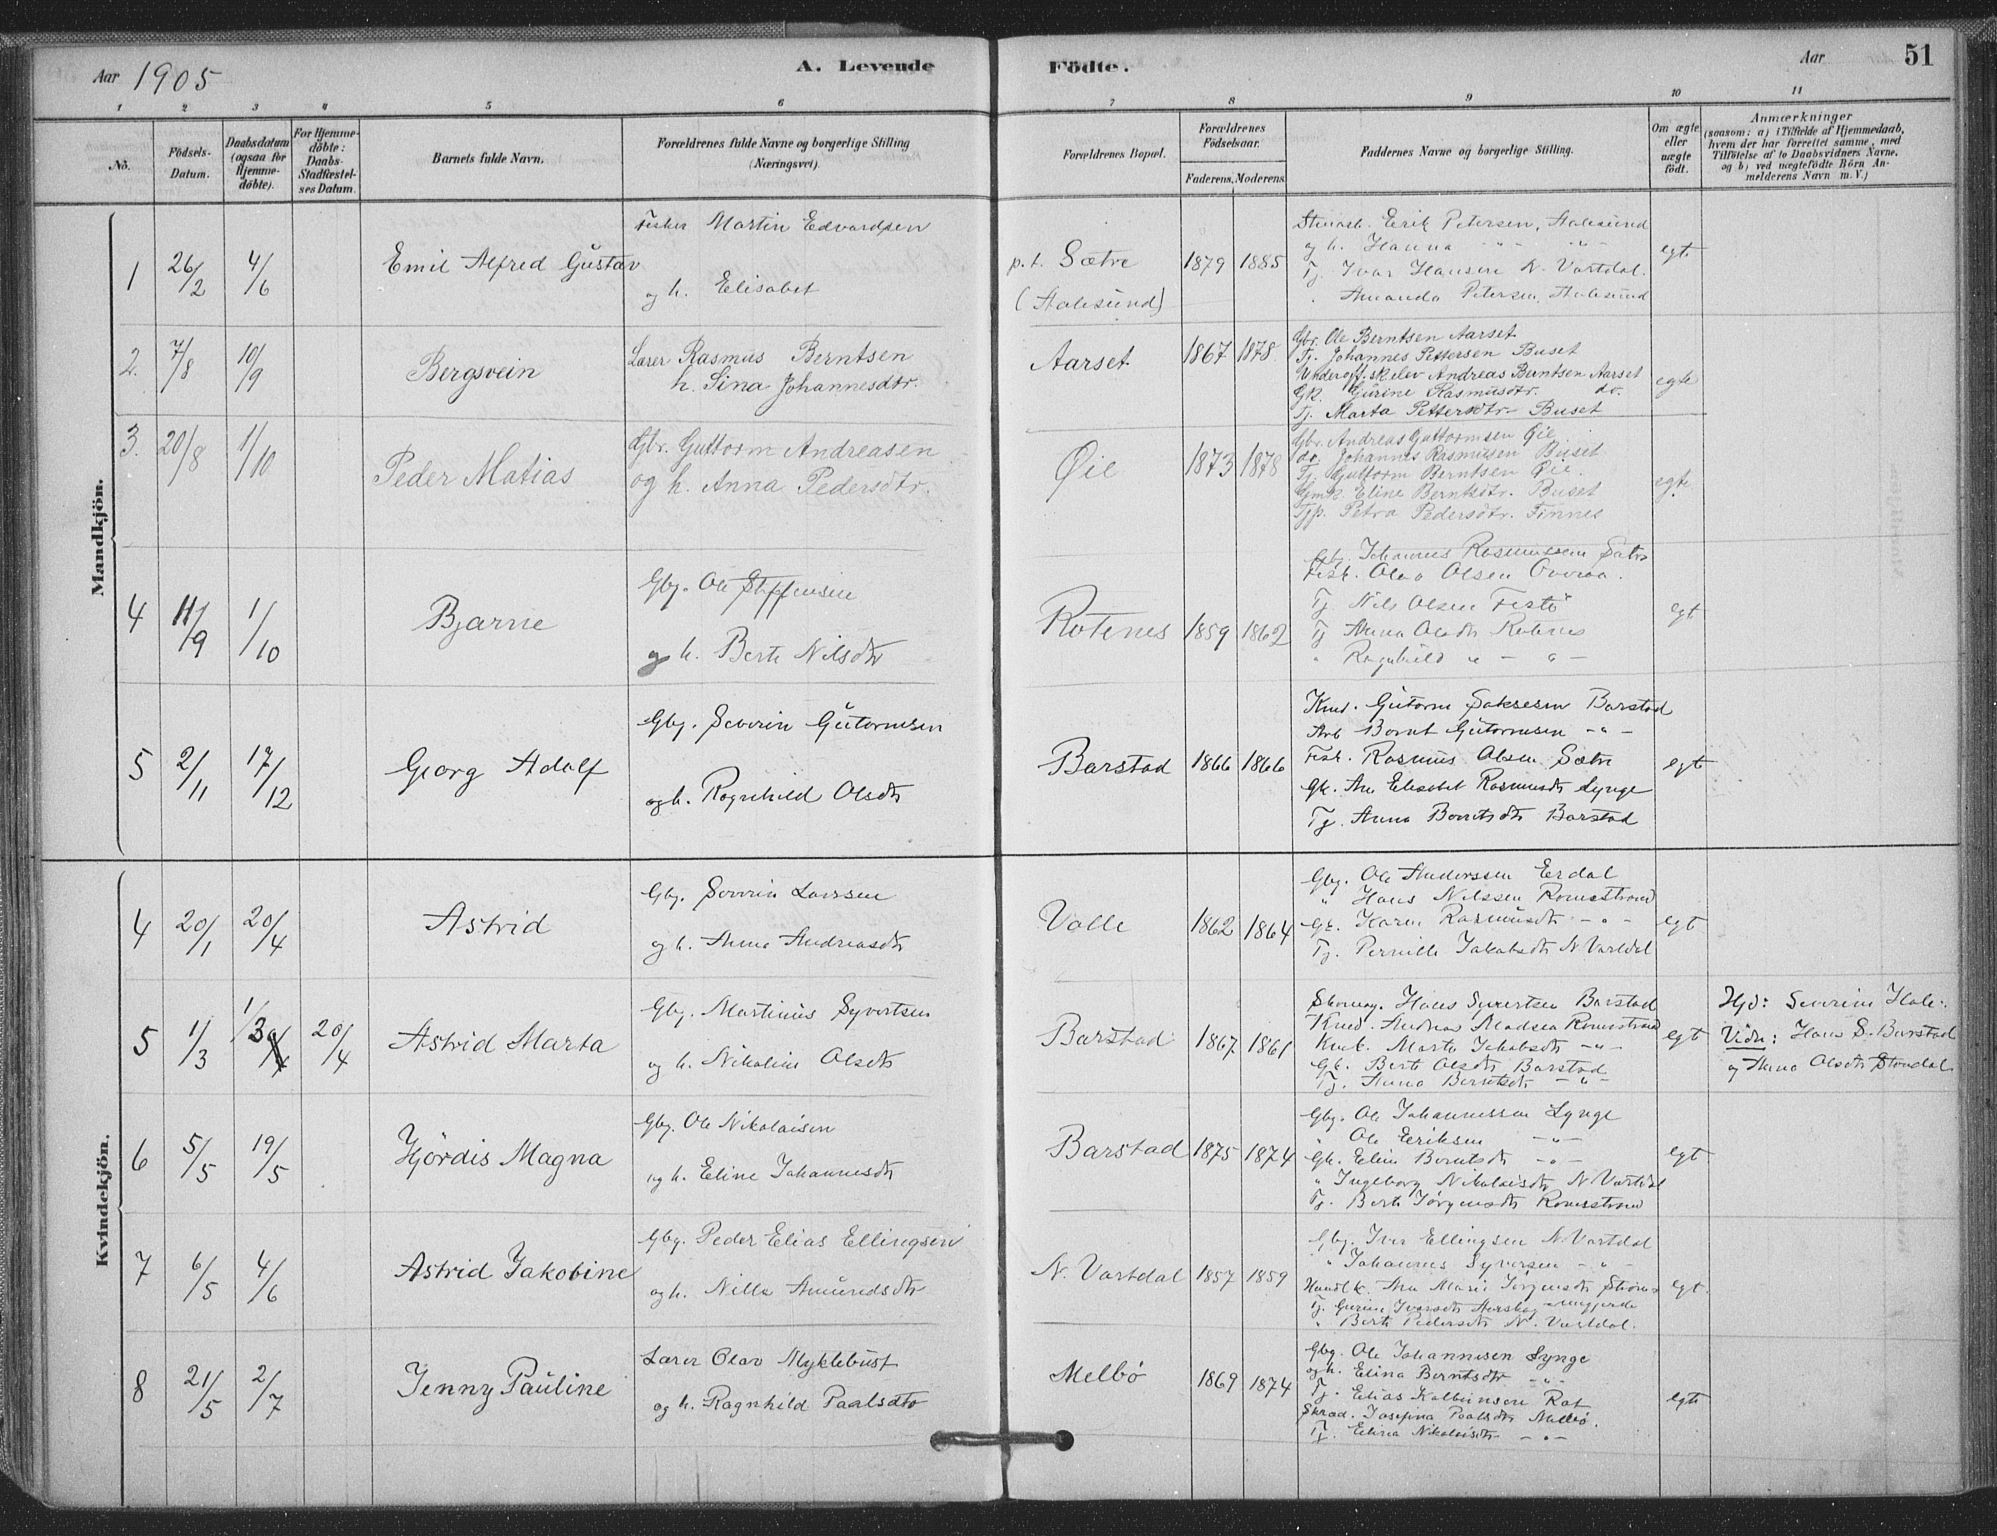 Aar 1905
A. Levende
Födte.
Aar
51
1 2 3 4 5 6 7 8 9 10 11
No.
Födsels-Datum.
Daabsdatum (ogsaa for Hjemme-döbte).
For Hjemme-döbte: Daabs-Stadfæstel-ses Datum.
Barnets fulde Navn.
Forældrenes fulde Navne og borgerlige Stilling (Næringsvei).
Forældrenes Bopæl.
Forældrenes Födselsaar.
Faderens. Moderens.
Faddernes Navne og borgerlige Stilling.
Om ægte eller uægte födt.
Anmærkninger (saasom: a) i Tilfælde af Hjemmedaab, hvem der har forrettet samme, med Tilföielse af to Daabsvidners Navne, og b) ved uægtefödte Börn An-melderens Navn m. V.)
Mandkjön.
1 26/2 4/6 Emil Alfred Gustav
Fisker Martin Edvardsen
og h. Elisabet
p. t. Sætre
(Aalesund)
1879 1885
Erik Petersen, Aalesund
og h. Hanna " "
Tj. Ivar Hansen N. Vartdal.
" Amanda Petersen, Aalesund
egt.
2. 7/8 10/9 Bergsvein
Lærer Rasmus Berntsen
h. Sina Johannesdtr.
Aarset 1867 1878.
Gbr. Ole Berntsen Aarset
Tj. Johannes Pettersen Buset
Underoff.skelev Andreas Berntsen Aarset
Gk. Gurine Rasmusdtr. do.
Tj. Marta Pettersdtr. Buset
egte
3. 20/8 1/10 Peder Matias
Gbr. Guttorm Andreasen
og h. Anna Pedersdtr.
Øie 1873 1878
Gbr. Andreas Guttormsen Øie.
do. Johannes Rasmusen Buset
Tj. Guttorm Berntsen Øie.
Gmk. Eline Berntsdtr. Buset
Petra Pedersdtr. Finnes
egte.
4 11/9 1/10 Bjarne
Gbg. Ole Steffensen
og h. Berte Nilsdtr
Rotenes 1859 1862
Gbg. Johannes Rasmussen Sætre
Fisk. Olav Olsen
Tj Nils Olsen Festö
Tj Anna Olsdtr Rotenes
" Ragnhild " - " -
egt
5 2/11 17/12 Georg Adolf
Gbg. Severin Gutormsen
og h. Ragnhild Olsdtr
Barstad 1866 1866
Gutorm Saksesen Barstad
Arb Bernt Gutormsen - " -
Fisk. Rasmus Olsen Sætre
Gk. Ane Elisabet Rasmusdtr Lynge
Tj. Anna Berntsdtr Barstad
egt
Kvindekjön.
4 20/1 20/4 Astrid
Gbg. Severin Larssen
og h. Anna Andreasdtr
Valle 1862 1864
Gbg. Ole Anderssen Erdal
" Hans Nilssen Romestrand
Gk. Karen Rasmusdtr - " -
Tj. Pernille Jakobsdtr N. Vartdal
egt
5 1/3 20/4 Astrid Marta
Gbg. Martinus Syvertsen
og h. Nikoline Olsdtr
Barstad 1867 1861
Hans Syvertsen Barstad
Andreas Madsen Romestrand
Marte Jakobsdtr - " -
Gk. Berte Olsdtr Barstad
Tj. Anna Berntsdtr - " -
egt
Hjd: Severin
Vidn: Hans S. Barstad
og Anna Olsdtr Standal
6 5/5 19/5 Hjördis Magna
Gbg. Ole Nikolaisen
og h. Eline Johannesdtr
Barstad 1875 1874
Gbg. Ole Johannessen Lynge
" Ole Eriksen - " -
Gk. Eline Berntsdtr - " -
" Ingeborg Nikolaisdtr N. Vartdal
Tj. Berte Jørgensdtr Romestrand
egt
7 6/5 4/6 Astrid Jakobine
Gbg. Peder Elias Ellingsen
og h. Nille Amundsdtr
N. Vartdal 1857 1859
Gbg. Iver Ellingsen N. Vartdal
" Johannes Syversen - " -
Handl.k. Ane Marie Jørgensdtr
Tj. Gurine Ivarsdtr
" Berte Pedersdtr N. Vartdal.
egt.
8 21/5 2/7 Jenny Pauline
Lærer Olav Myklebust
og h. Ragnhild Paalsdtr
Melbö 1869 1874
Gbg. Ole Johannesen Lynge
og h. Elina Berntsdtr - " -
Tj. Elias Kolbeinsen
Josefina Paalsdtr Melbö.
Tj. Elina Nikolaisdtr - " -
egte